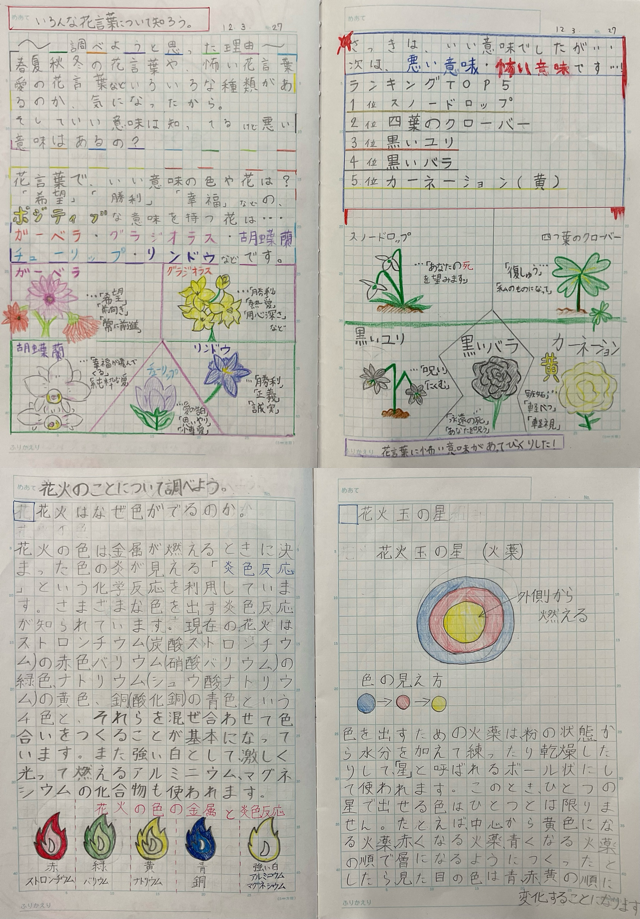 いろんな花言葉について知ろう。
12 3 27
調べようと思った理由
春夏秋冬の花言葉や、怖い花言葉
愛の花言葉などいろいろな種類があ
るのか、気になったから。
意味はあるの？
花言葉で、いい意味の色や花は？
「希望」「勝利」「幸福」などの、
ポジティブな意味を持つ花は…
ガーベラ・グラジオラス・胡蝶蘭
チューリップ・リンドウなどです。
ガーベラ
…「希望」
「前向き」
「常に前進」
グラジオラス
…「勝利」
「用心深さ」
など
胡蝶蘭
…「幸福が飛んで
くる」
チューリップ
「思いやり」
「博愛」
リンドウ
…「勝利」
「正義」
「誠実」
ふりかえり
12 3 27
さっきは、いい意味でしたが…
次は、悪い意味・怖い意味です…!
ランキングTOP5
1位 スノードロップ
2位 四葉のクローバー
3位 黒いユリ
4位 黒いバラ
5位 カーネーション(黄)
スノードロップ
…「あなたの死
を望みます」
四つ葉のクローバー
…「復しゅう」
「私のものになって」
黒いユリ
…「呪い」
黒いバラ
「永遠の死」
カーネーション
黄
「軽べつ」
「軽視」
ふりかえり
花言葉に怖い意味があってびっくりした!
めあて
花火のことについて調べよう。
花火はなぜ色がでるのか。
花火の色は金属が燃えるときに決
まった色の炎が見える「炎色反応
」という化学反応を利用していま
す。さまざまな色を出す炎色反応
が知られています。現在の花火は
ストロンチウム(炭酸ストロンチウ
ム)の赤色バリウム(硝酸バリウム)の
緑色、ナトリウム(シュウ酸ナトリウ
ム)の黄色、銅(酸化銅)の青色という
4色と、それらを混ぜ合わせて色
合いをつくることが基本になって
います。また強い白として、激しく
光って燃えるアルミニウム、マグネ
シウムの化合物も使われます。
花火の色の金属と炎色反応
赤
ストロンチウム
緑
バリウム
黄
ナトリウム
青
銅
強い白
アルミニウム
マグネシウム
ふりかえり
めあて
花火玉の星
花火玉の星(火薬)
外側から
燃える
色の見え方
色を出すための火薬は粉の状態か
ら水分を加えて練ったり乾燥した
りして「星」と呼ばれるボール状にし
て使われます。このとき、ひとつの
星で出せる色はひとつとは限りま
せん。たとえば、中心から黄色にな
る火薬赤くなる火薬青くなる火薬
の順で層になるようにつくったと
したら見た目の色は青赤黄の順に
変化することになります
ふりかえり